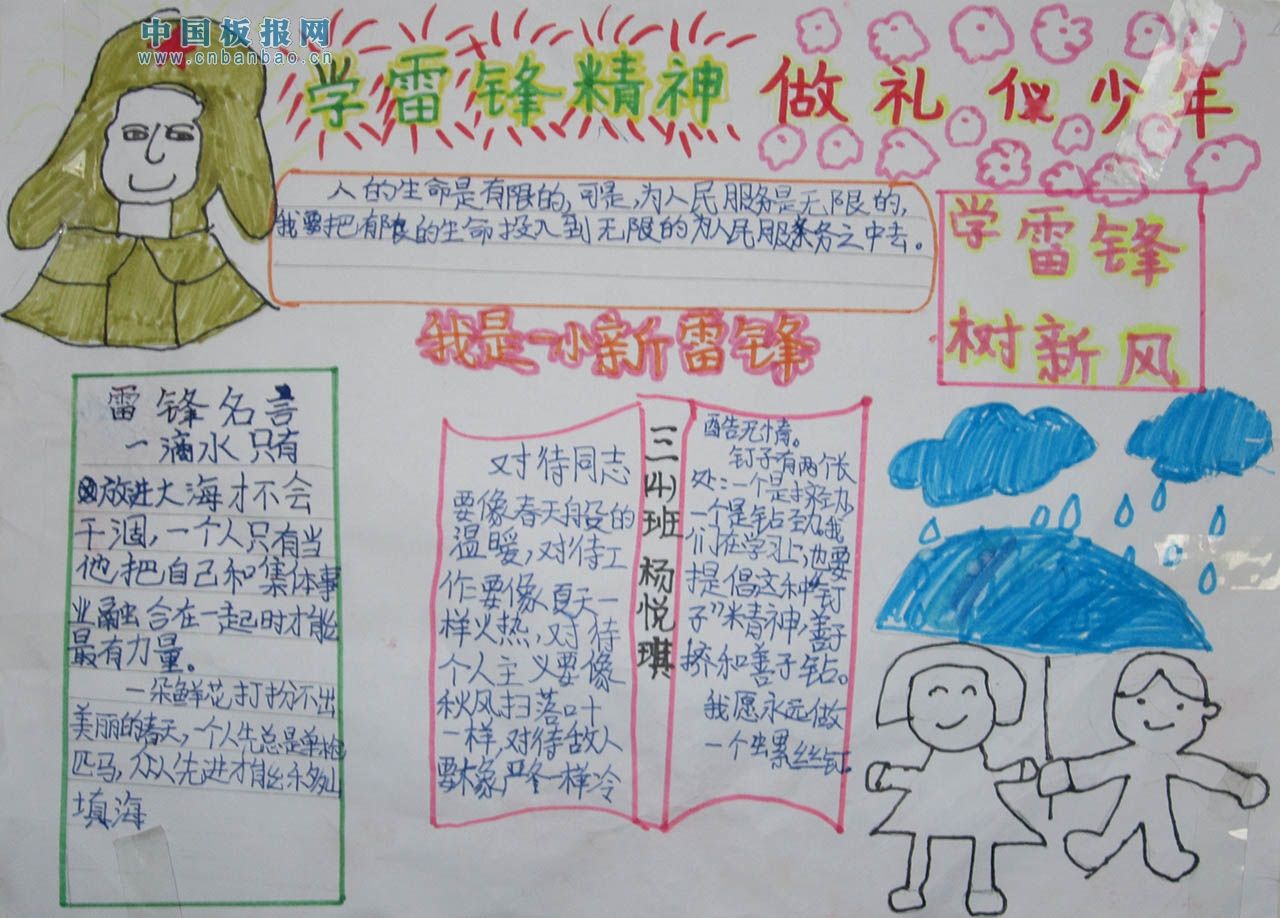 中国板报网
www.cnbanbao.cn
学雷锋精神 做礼仪少年
人的生命是有限的,可是,为人民服务是无限的,
我要把有限的生命投入到无限的为人民服务之中去。
学雷锋
树新风
我是一小新雷锋
雷锋名言
一滴水只有
放进大海才不会
干涸,一个人只有当
他把自己和集体事
业融合在一起时才能
最有力量。
一朵鲜花打扮不出
美丽的春天,一个人先总是单枪
匹马,众人先进才能移山
填海
对待同志
要像春天般的
温暖,对待工
作要像夏天一
样火热,对待
个人主义要像
秋风扫落叶
一样,对待敌人
要像严冬一样冷
三(4)班 杨悦琪
酷无情。
钉子有两个长
处:一个是挤劲,
一个是钻劲,我
们在学习上,也要
提倡这种“钉
子”精神,善于
挤和善于钻。
我愿永远做
一个螺丝钉。